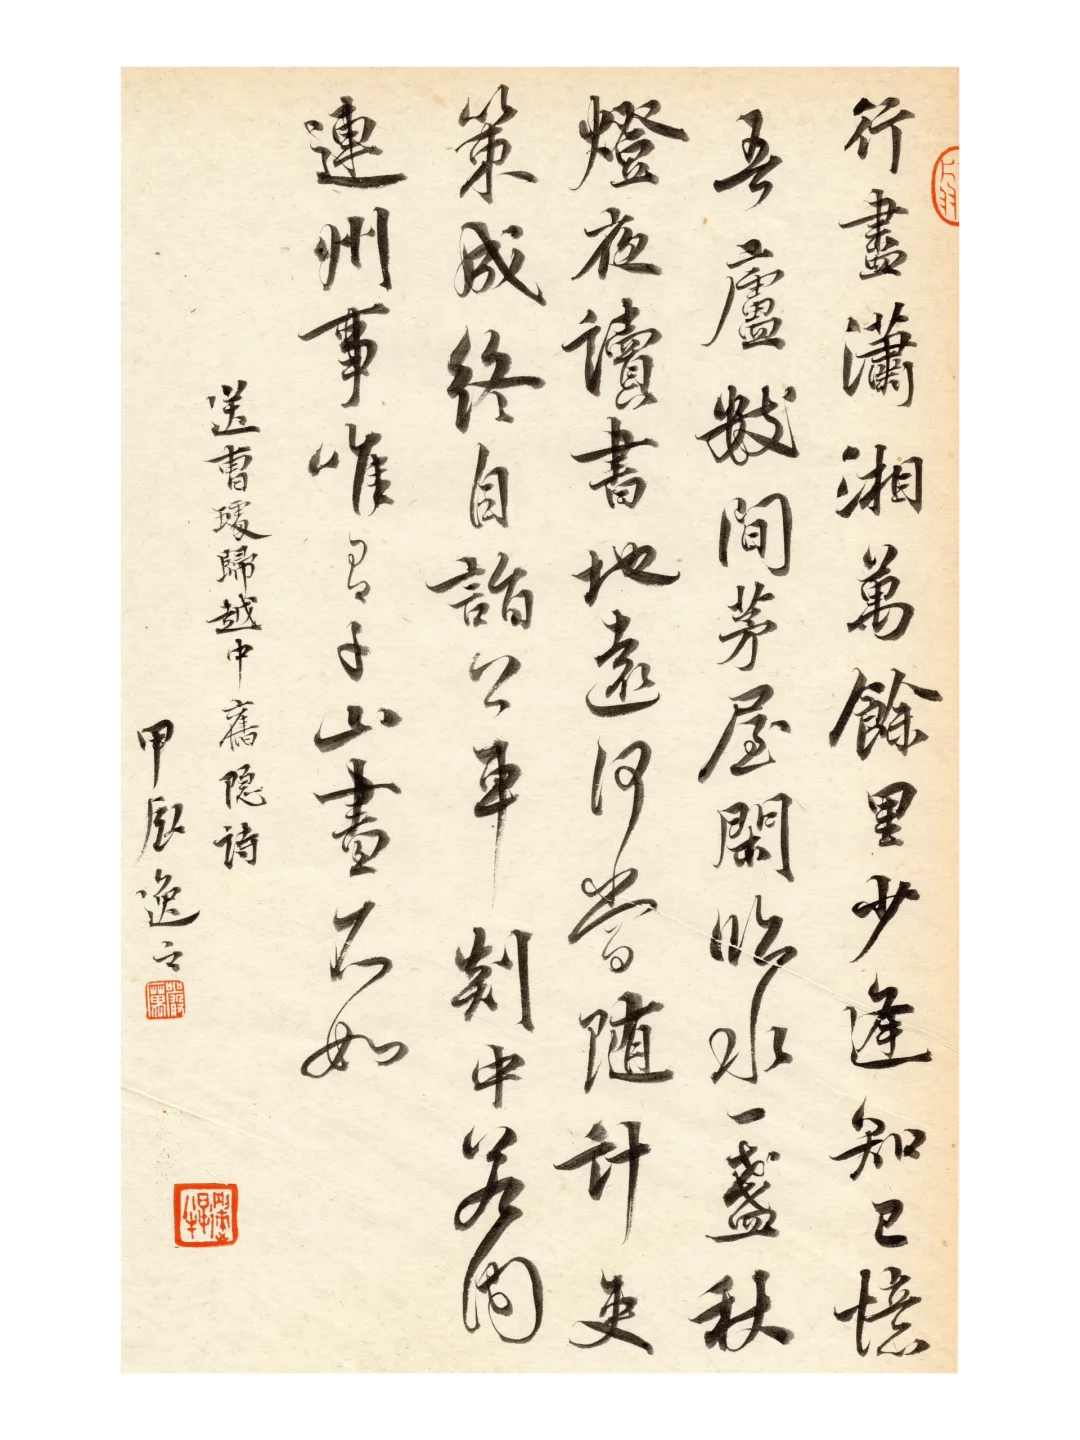 行盡瀟湘萬餘里少逢知己憶
吾廬數間茅屋閑臨水一盞秋
燈夜讀書地遠何當随計吏
策成終自詣公車剡中若問
連州事唯有千山畫不如
送曹璩歸越中舊隐詩
甲辰逸